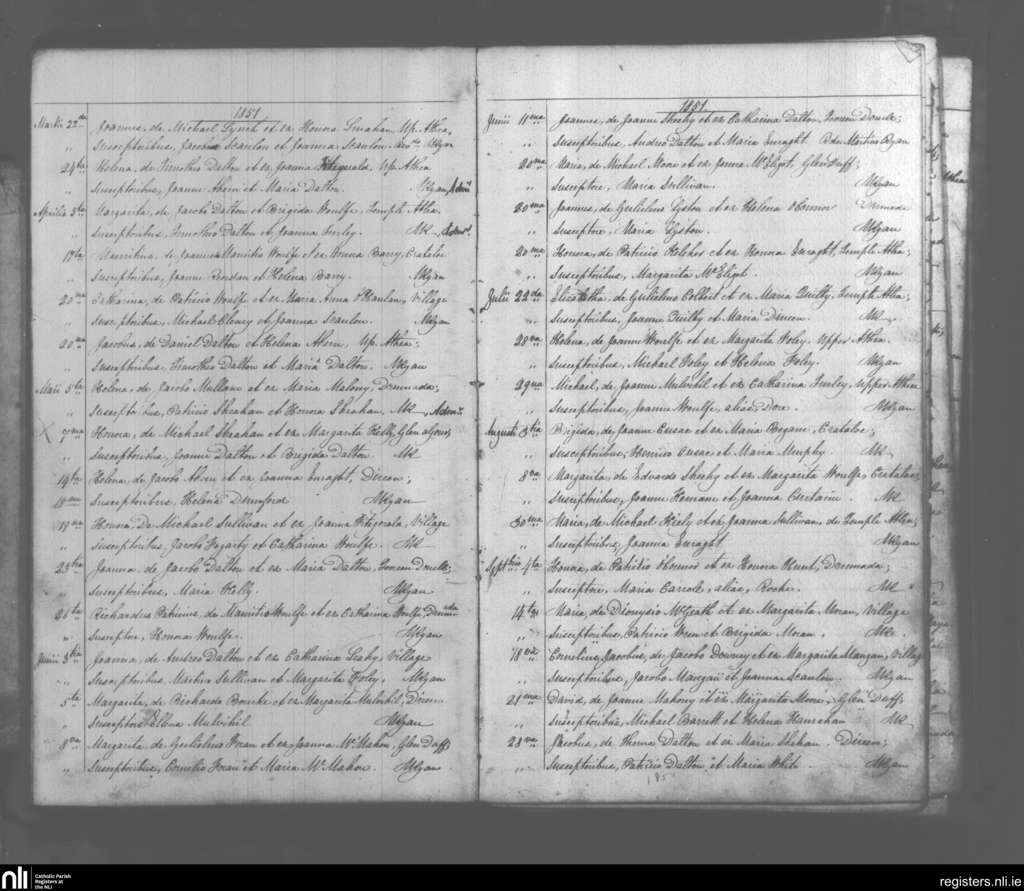 1851
Martii 22da Joannes, de Michael Lynch et ex Honora Lenahan, Up. Athea,
" Susceptoribus, Jacobus Scanlon et Joanna Scanlon.
24ta Helena, de Timotheo Dalton et ex Joanna Fitzgerald, Up. Athea
" Susceptoribus, Joanne Ahern et Maria Dalton.
Aprilis 5ta Margarita, de Jacobo Dalton et Brigida Woulfe, Temple Athea,
" Susceptoribus, Timotheo Dalton et Joanna
19ta de Joanne Mauritio Woulfe et ex Anna Barry, Cratloe
" Susceptoribus, Joanne Riordan et Helena Barry.
20ma Catharina, de Patricio Woulfe et ex Maria Anna O'Hanlon, Village
" Susceptoribus, Michael Clancy et Joanna Scanlon.
20ma Jacobus, de Daniel Dalton et Helena Ahern, Up. Athea;
" Susceptoribus, Timotheo Dalton et Maria Dalton.
Maii 5ta Helena, de Jacobo Mullane et ex Maria Mahony, Dromada;
" Susceptoribus, Patricio Sheahan et Honora Sheahan,
X 7ma Honora, de Michael Sheahan et ex Margarita Kelly, Glenagower,
" Susceptoribus, Joanne Dalton et Brigida Dalton.
14ta Helena, de Jacobo Ahern et ex Joanna Enraght, Direen;
Susceptoribus, Helena
18va Honora, De Michael Sullivan et ex Joanna Fitzgerald, Village
" Susceptoribus, Jacobo Fogarty et Catharina Woulfe.
25ta Joanna, de Jacobo Dalton et ex Maria Dalton,
" Susceptoribus, Maria Kelly.
26ta Richardus Patricius, de Mauritio Woulfe et ex Catharina Woulfe, Dromada
" Susceptore, Honora Woulfe.
Junii 3tia Joanna, de Andreo Dalton et ex Catharina Leahy, Village
" Susceptoribus, Martino Sullivan et Margarita Foley.
5ta Margarita, de Richardo Bourke et ex Margarita Mulvihil, Direen
" Susceptore Ellena Mulvihil
8va Margarita, de Gulielmo Foran et ex Joanna McMahon, Glen Duff;
" Susceptoribus, Cornelio Foran et Maria McMahon.
1851
Junii 11ma Joannes, de Joanne Sheehy et ex Catharina Dalton,
" Susceptoribus, Andreo Dalton et Maria Enraght.
20ma Maria, de Michael Moore et ex Joanna McEligot, Glen Duff;
" Susceptore, Maria Sullivan.
20ma Joannes, de Gulielmo Liston et ex Helena O'Connor Dromada
" Susceptore, Maria Liston.
20ma Honora, de Patricio Kelcher et ex Honora Enraght, Temple Athea;
" Susceptoribus, Margarita McEligot.
Julii 22da Elizabetha, de Gulielmo Colbert et ex Maria Quilty, Temple Athea;
" Susceptoribus, Joanne Quilty et Maria Dineen.
28va Helena, de Joanne Woulfe et ex Margarita Foley, Upper Athea.
" Susceptoribus, Michael Foley et Helena Foley.
29na Michael, de Joanne Mulvihil et ex Catharina Upper Athea
Susceptoribus, Joanna Woulfe, alias, Dore.
Augusti 3tia Brigida, de Joanne Cusac et ex Maria Begane, Crataloe;
" Susceptoribus, Henrico Cusac et Maria Murphy.
8va Margarita, de Edvardo Sheehy et ex Margarita Woulfe, Crataloe;
" Susceptoribus, Joanne Kennane et Joanna Curtain.
30ma Maria, de Michael Kiely et ex Joanna Sullivan, de Temple Athea;
" Susceptoribus, Joanna Enraght
Septbris 4ta Honora, de Patricio OConnor et ex Honora Hunt, Dromada;
" Susceptore, Maria Carrole, alias, Roche.
14ta Maria, de Dionysio McGrath et ex Margarita Moran, Village
" Susceptoribus, Patricio et Brigida Moran.
18va Cornelius Jacobus, de Jacobo Downey et ex Margarita Mangan, Village
" Susceptoribus, Jacobo Mangan et Joanna Scanlon.
21ma David, de Joanne Mahony et ex Margarita Mone, Glen Duff;
" Susceptoribus, Michael Barrett et Helena Hanrahan
28va Jacobus, de Thoma Dalton et ex Maria Shehan, Direen;
" Susceptoribus, Patricio Dalton et Maria White.
nli Catholic Parish Registers at the NLI
registers.nli.ie